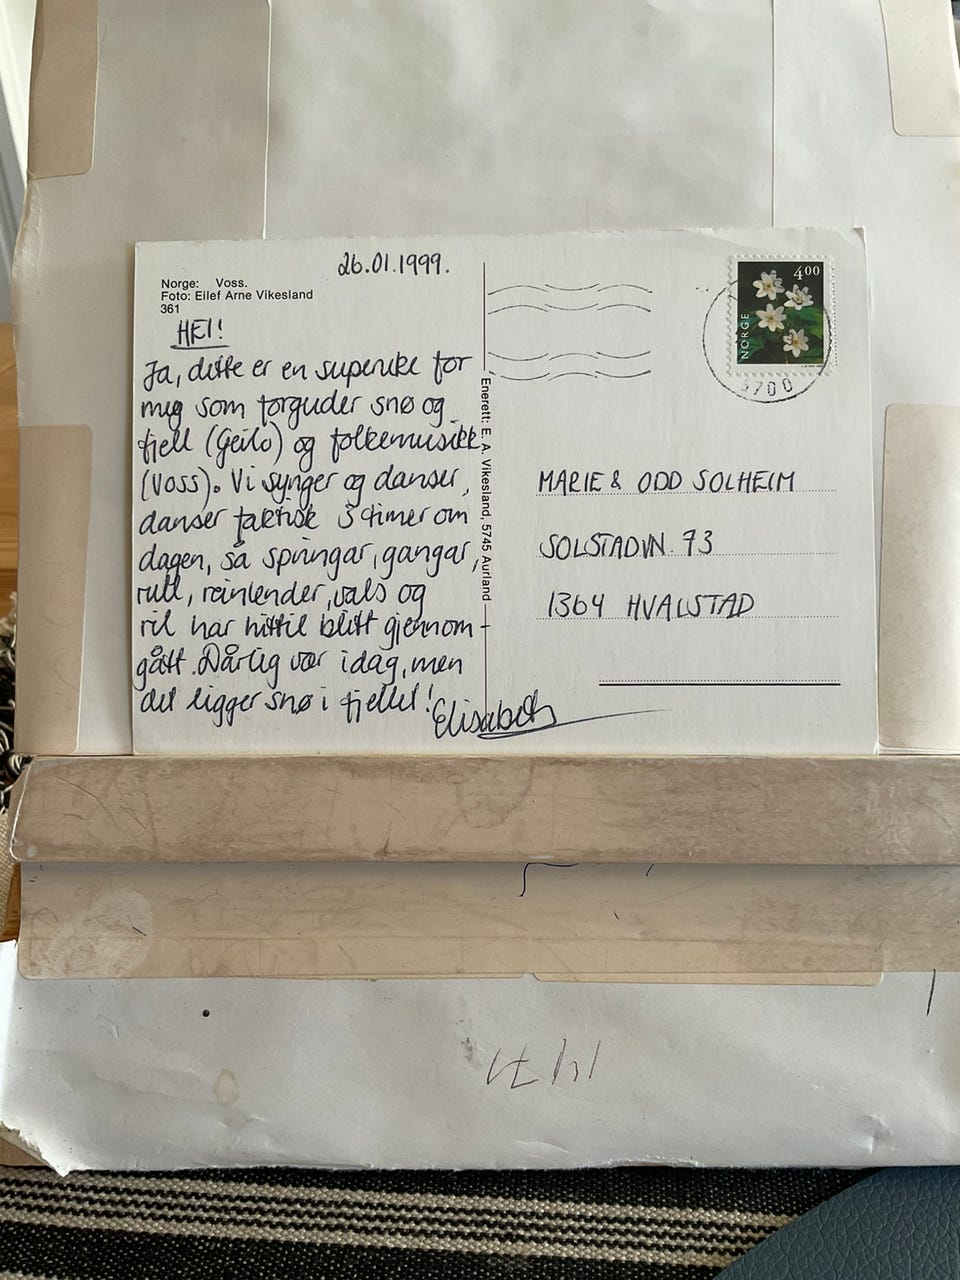 26.01.1999.
Norge: Voss.
Foto: Eilef Arne Vikesland
361
HEI!
Ja, dette er en superuke for
meg som forguder snø og
fjell (Geilo) og folkemusikk
(Voss). Vi synger og danser,
danser faktisk 3 timer om
dagen, så springar, gangar,
rull, reinlender, vals og
ril har hittil blitt gjennom-
gått. Dårlig vær idag, men
det ligger snø i fjellet!
Elisabeth
Enerett: E. A. Vikesland, 5745 Aurland
NORGE
4⁰⁰
5700
MARIE & ODD SOLHEIM
SOLSTADVN. 73
1364 HVALSTAD